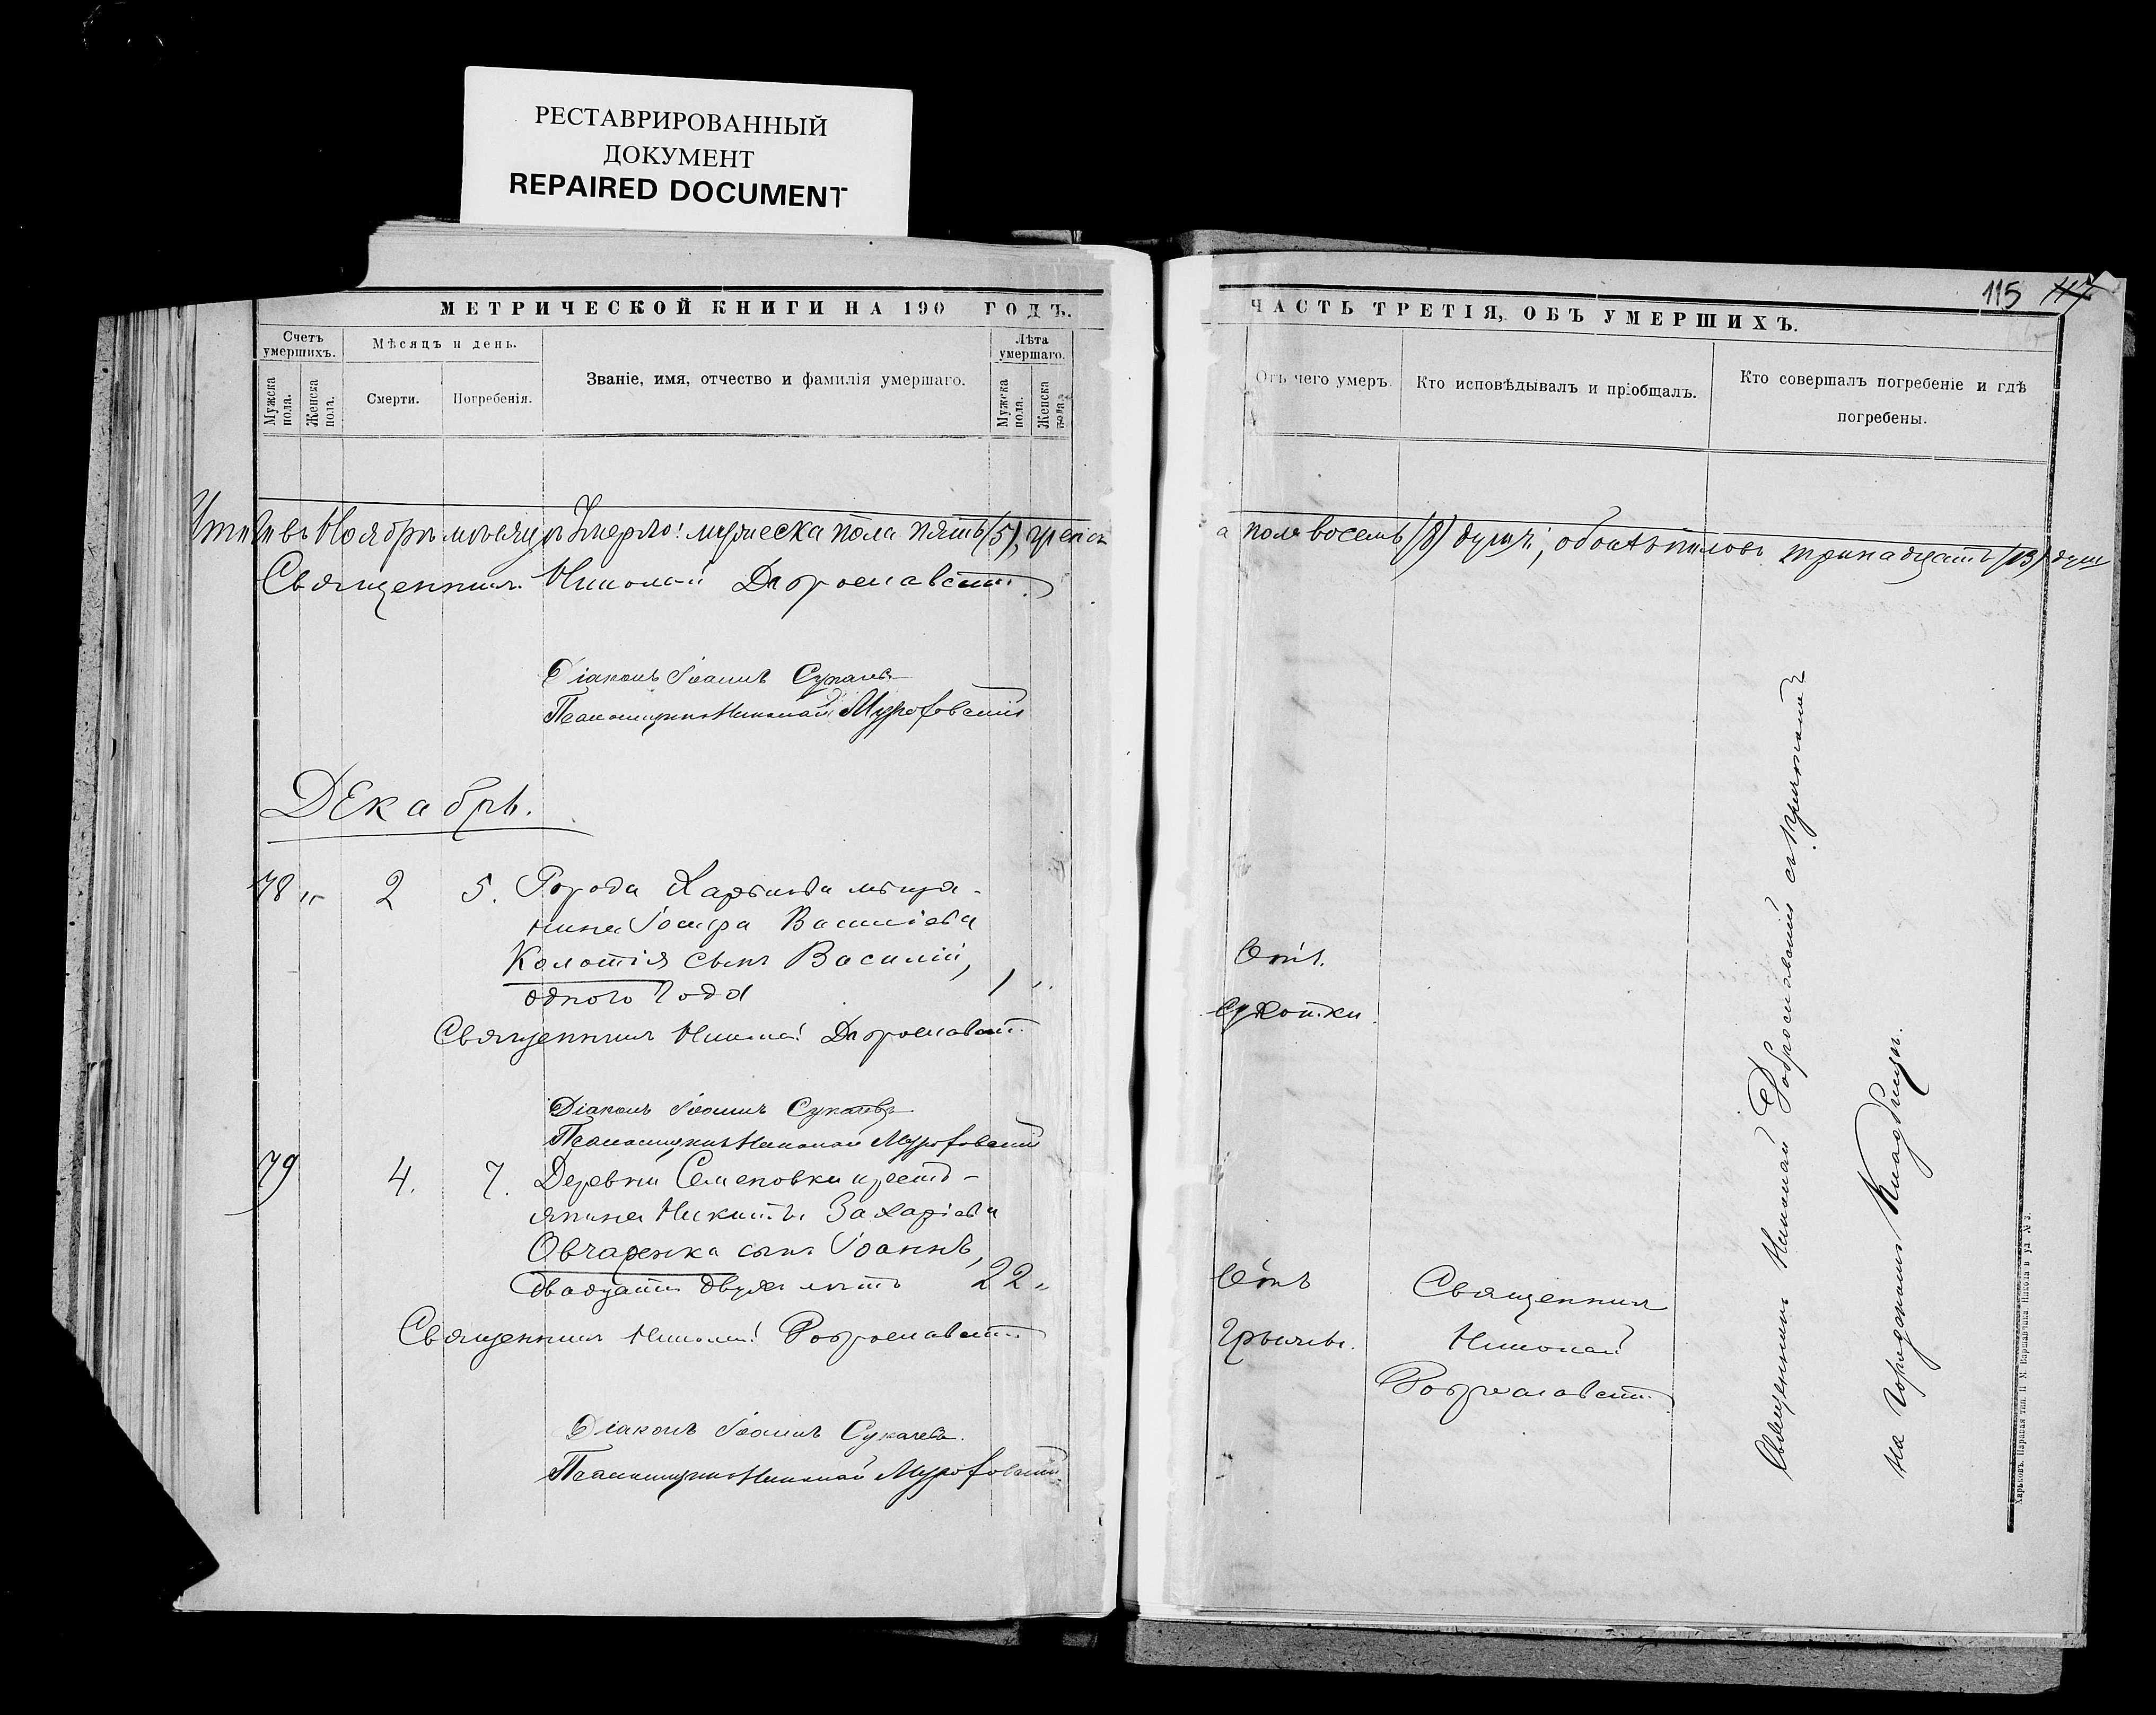 РЕСТАВРИРОВАННЫЙ
ДОКУМЕНТ
REPAIRED DOCUMENT
МЕТРИЧЕСКОЙ КНИГИ НА 190 ГОДЪ.
Счетъ умершихъ.
Мужска пола.
Женска пола.
Мѣсяцъ и день.
Смерти.
Погребенія.
Званіе, имя, отчество и фамилія умершаго.
Лѣта умершаго.
Мужска пола.
Женска пола.
115 117
ЧАСТЬ ТРЕТІЯ, ОБЪ УМЕРШИХЪ.
Отъ чего умеръ.
Кто исповѣдывалъ и пріобщалъ.
Кто совершалъ погребеніе и гдѣ
погребены.
Итого въ Ноябрѣ мѣсяцѣ Умерло: мужеска пола пять (5), женск
а пола восемь (8) душъ, обоихъ половъ тринадцать (13) душ
Священникъ Николай Доброславскій
Діаконъ Іоаннъ Сукачевъ
Псаломщикъ Николай
Декабрь.
78 " 2 5. Города Харькова мѣща-
нина Іосифа Василіева
Колотія сынъ Василій,
одного года 1 "
Отъ
сухотки.
Священникъ Николай Доброславскій
Діаконъ Іоаннъ Сукачевъ
Псаломщикъ Николай
79 4. 7. Деревни Семеновки крестья-
янина Никиты Захаріева
Овчаренка сынъ Іоаннъ,
двадцати двухъ лѣтъ 22 "
Отъ
грыжи.
Священникъ
Николай
Доброславскій
Священникъ Николай Доброславскій
Діаконъ Іоаннъ Сукачевъ
Псаломщикъ Николай
Священникъ Николай Доброславскій съ причтомъ
на городскомъ Кладбищѣ.